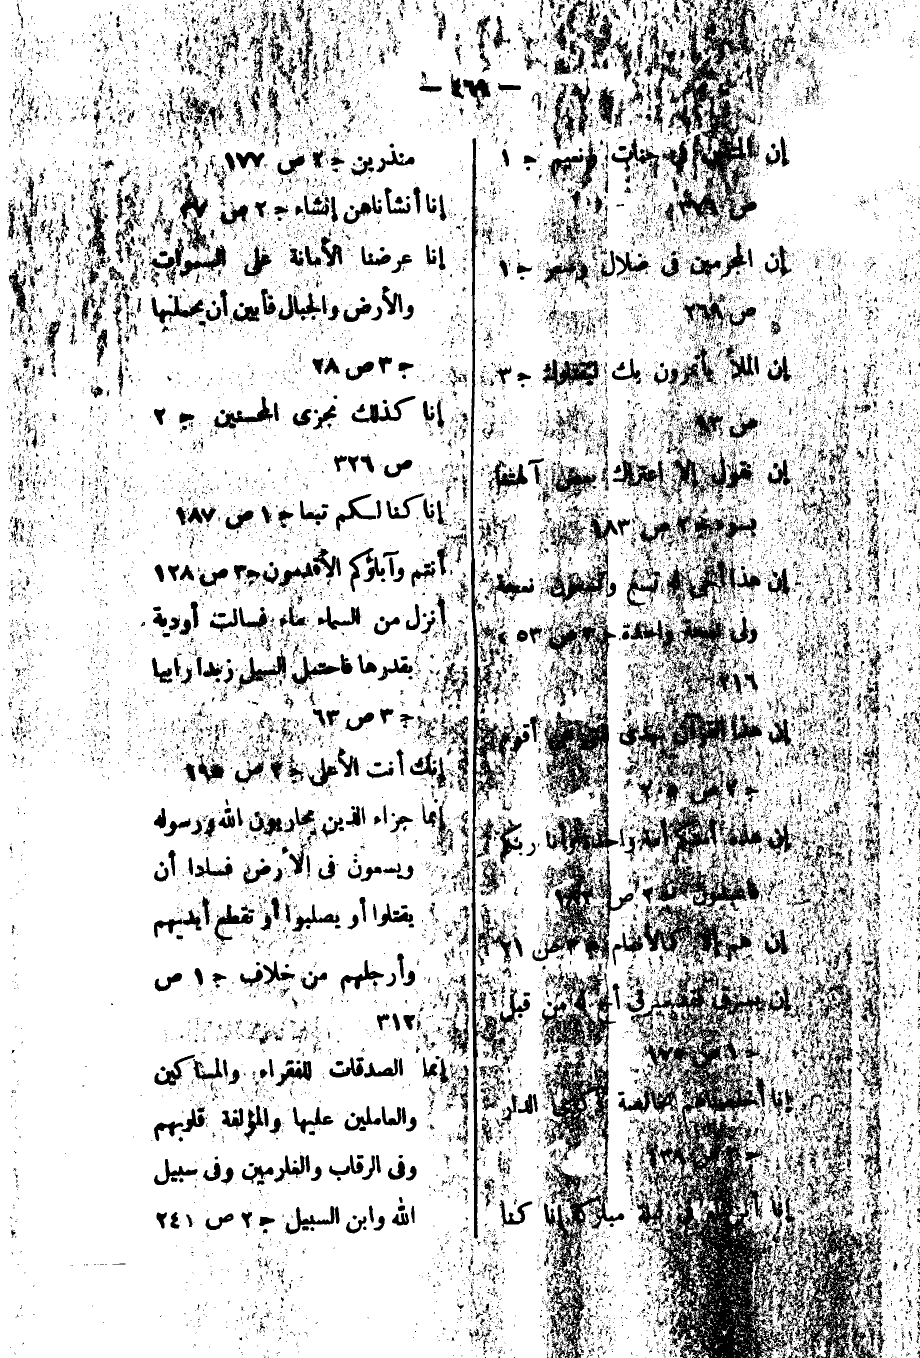 — ٤٦٩ —
إن المتقين في جنات ونعيم ج ١
ص
إن المجرمين فى ضلال وسعر ج ١
ص ٢٦٨
إن الملأ يأتمرون بك ليقتلوك ج ٣
ص ٩٣
إن نقول إلا اعتراك بعض آلهتنا
بسوء ج ٢ ص ١٨٣
إن هذا أخى له تسع وتسعون نعجة
ولى نعجة واحدة ج ٣ ص ٥٣ ،
٢١٦
إن هذا القرآن يهدى للتى هى أقوم
ج ٢ ص
إن هذه أمتكم أمة واحدة وأنا ربكم
فاعبدون ج ٢ ص
إن هم إلا كالأنعام ج ٣ ص ٢١
إن يسرق فقد سرق أخ له من قبل
ج ١ ص ١٧٥
إنا أخلصناهم بخالصة ذكرى الدار
ج ص ١٣٨
إنا أنزلناه في ليلة مباركة إنا كنا
منذرين ج ٢ ص ١٧٧
إنا أنشأناهن إنشاء ج ٢ ص ٣٧
إنا عرضنا الأمانة على السموات
والأرض والجبال فأبين أن يحملنها
ج ٣ ص ٢٨
إنا كذلك نجزى المحسنين ج ٢
ص ٣٢٦
إنا كنا لكم تبعا ج ١ ص ١٨٧
أنتم وآباؤكم الأقدمون ج ٣ ص ١٢٨
أنزل من السماء ماء فسالت أودية
بقدرها فاحتمل السيل زبدا رابيا
ج ٣ ص ٦٣
إنك أنت الأعلى ج ٢ ص ١٩٥
إنما جزاء الذين يحاربون الله ورسوله
ويسعون فى الأرض فسادا أن
يقتلوا أو يصلبوا أو تقطع أيديهم
وأرجلهم من خلاف ج ١ ص
٣١٢
إنما الصدقات للفقراء والمساكين
والعاملين عليها والمؤلفة قلوبهم
وفى الرقاب والغارمين وفى سبيل
الله وابن السبيل ج ٢ ص ٢٤١